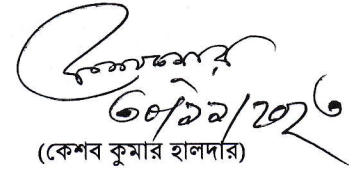 ৩০/১১/২০২৩
(কেশব কুমার হালদার)